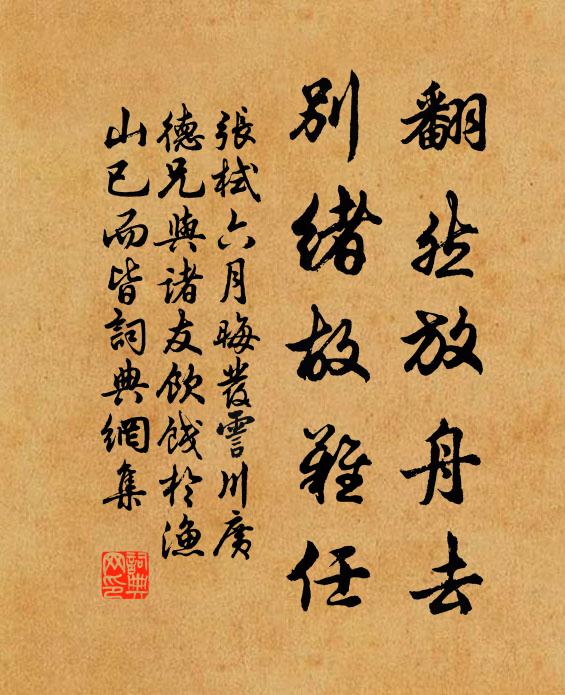 翻然放舟去
別緒故難任
張栻六月晦發雲川廣
德兄與諸友飲餞於漁
山已而皆詞典網集
詞典
网印